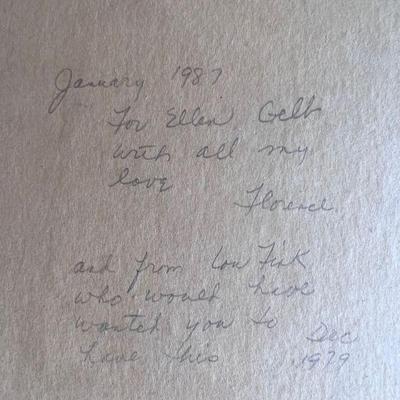 January 1987
For Ellen Gelb
with all my
love
Florence.
and from Lou Fink
who would have
wanted you to
have this
Dec
1979